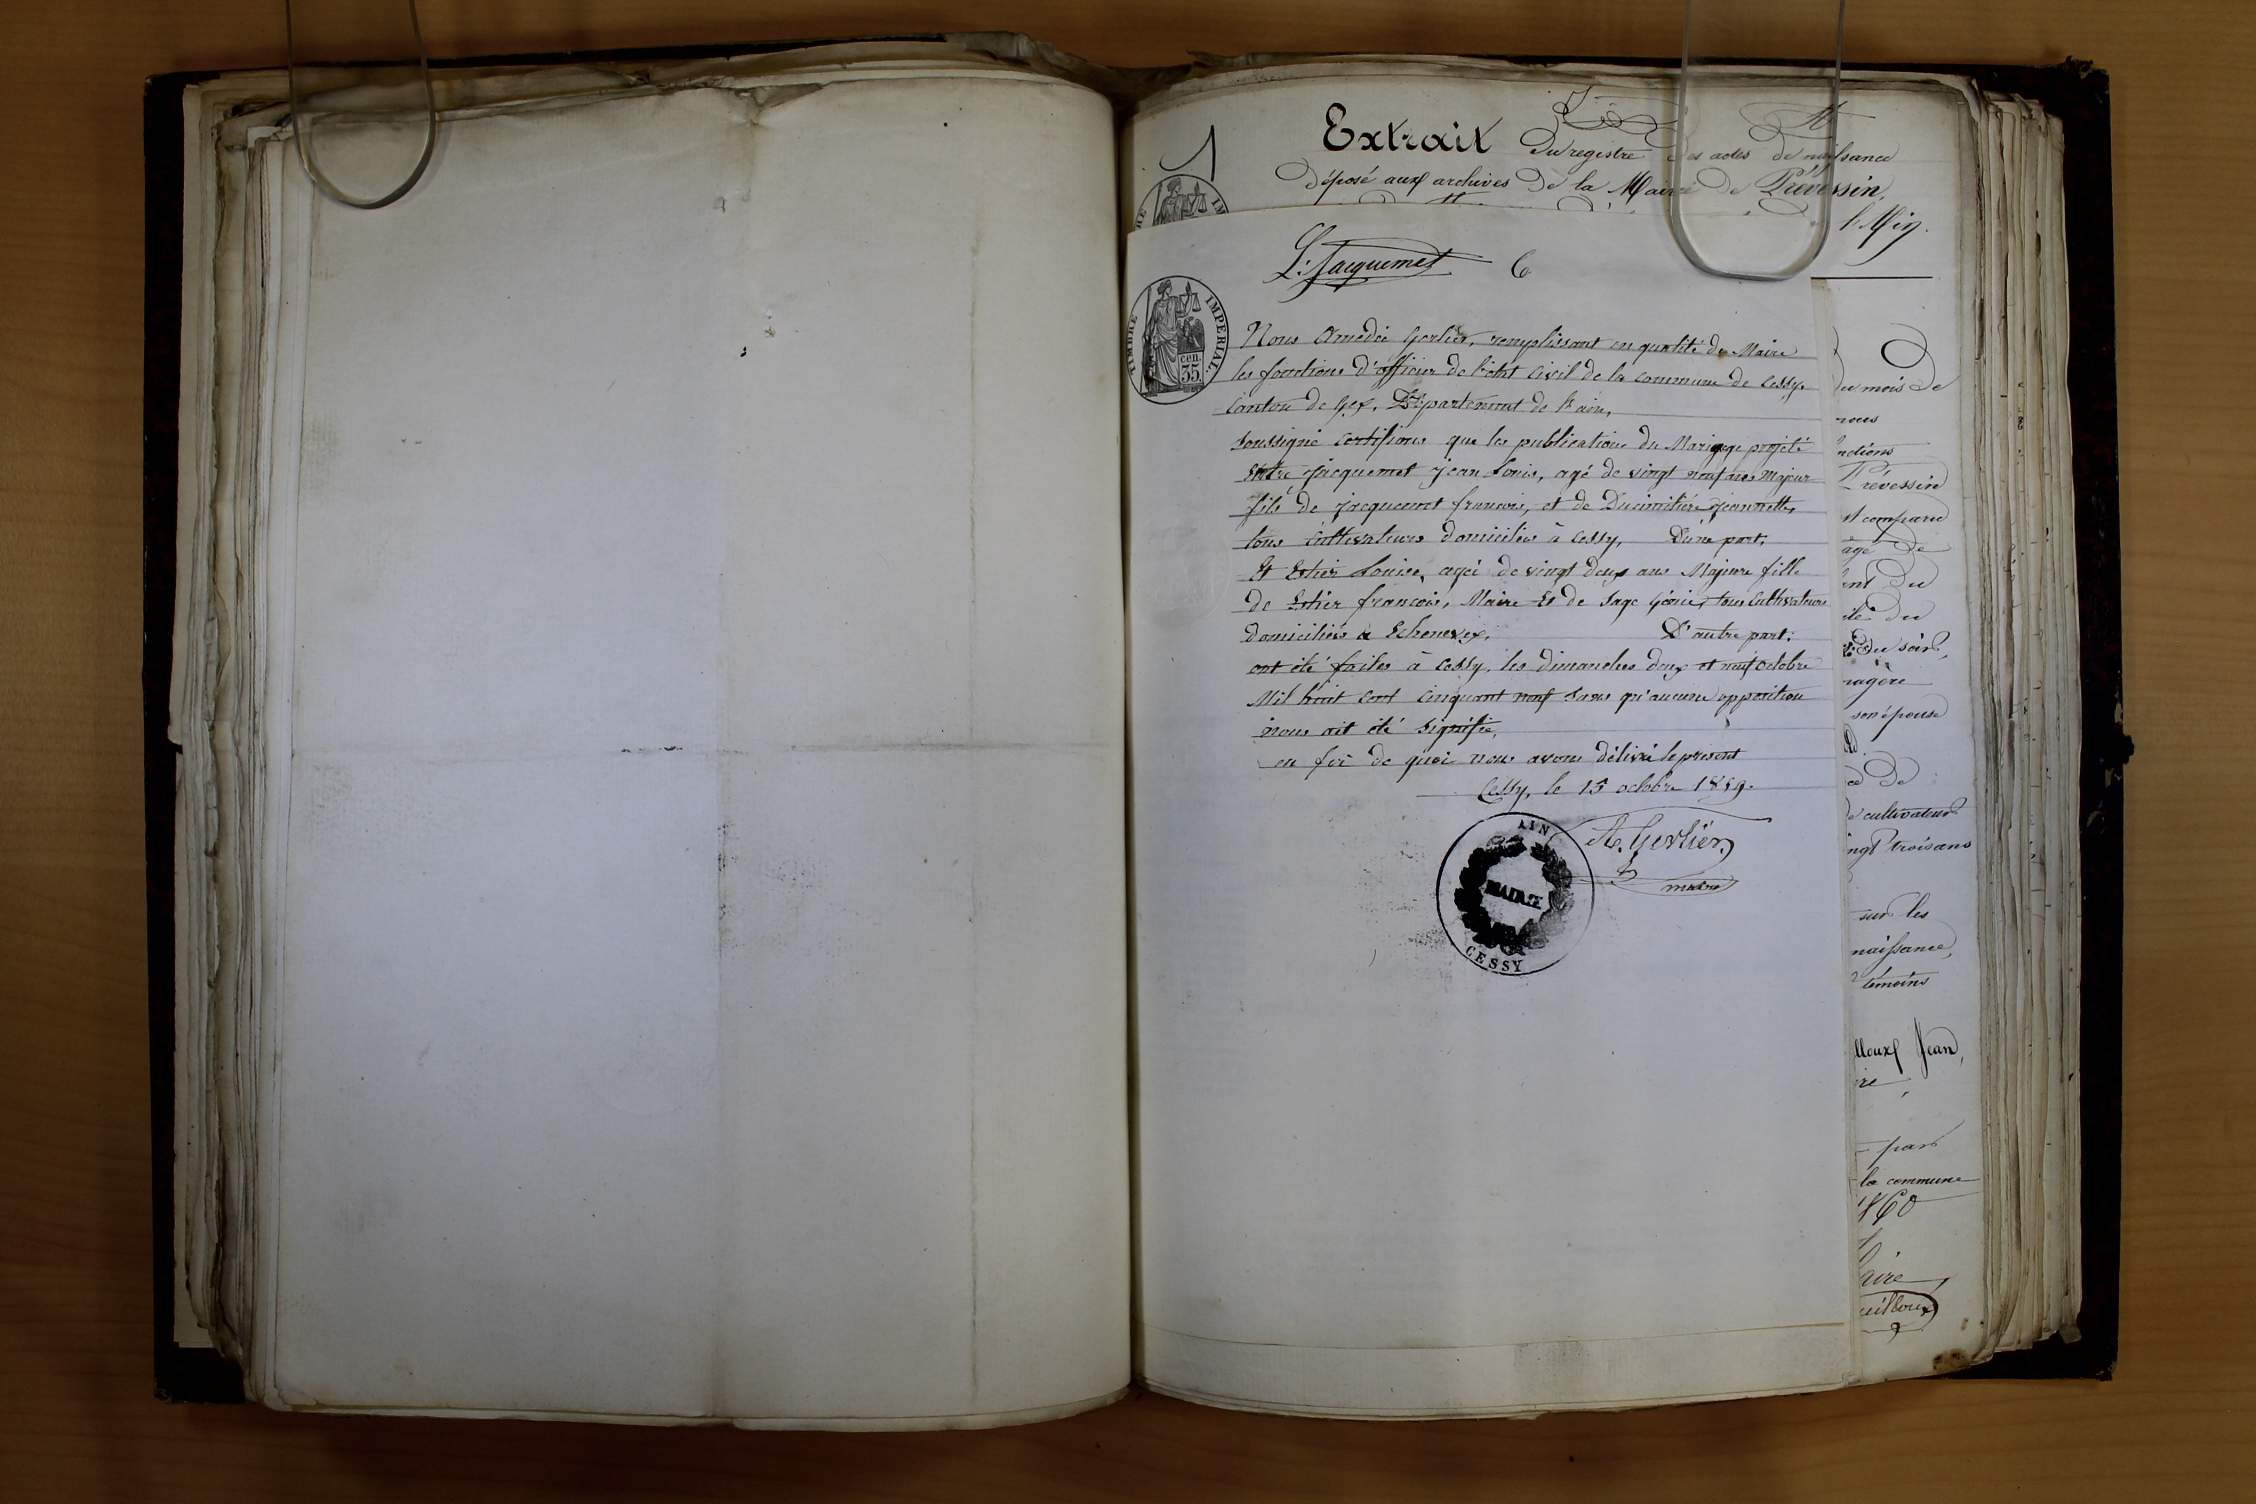 1
Extrait du registre des actes de naissance
déposé aux archives de la Mairie de Prévessin,
le Mig.
L. Jacquemet 6
TIMBRE IMPERIAL.
35 cen.
Nous Amedée Gerlier, remplissant en qualité de Maire
les fonctions d'officier de l'état civil de la commune de Cessy
Canton de Gex, Département de l'ain,
soussigné certifions que les publications du Mariage projeté
entre Jacquemet Jean Louis, agé de vingt neuf ans Majeur
fils de Jacquemet francois, et de Ducimitière Jeannette,
tous Cultivateurs domiciliés à Cessy, D'une part,
Et Estier Louise, agée de vingt deux ans Majeure fille
de Estier francois, Maire Et de Sage Génie, tous Cultivateurs
domiciliés à Echenevex, D'autre part;
ont été faites à Cessy, les dimanches deux et neuf octobre
Mil huit cent cinquant neuf sans qu'aucune opposition
nous ait été signifie,
en foi de quoi nous avons délivré le present
Cessy, le 15 octobre 1859.
A. Gerlier,
maire
AIN
MAIRIE
CESSY
du mois de
nous
nctions
Prévessin
st comparu
agé de
ent du
ile du
du soir,
nagère
son épouse
ce de
cultivateur
ingt trois ans
sur les
naissance,
témoins
lloux Jean,
ire
par
la commune
1860
aire
uilloux